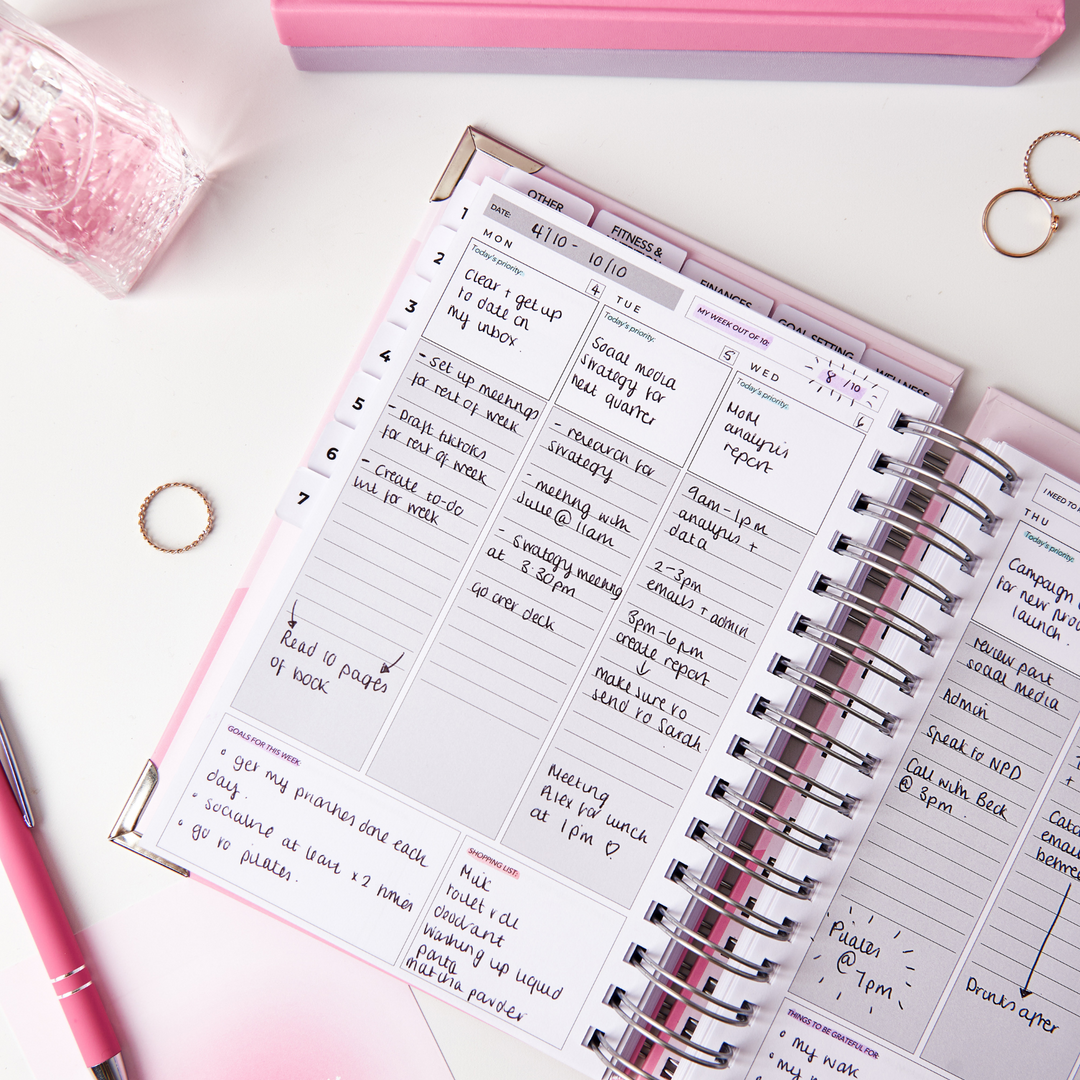 OTHER
FITNESS &
FINANCES
GOAL SETTING
WELLNESS
1
2
3
4
5
6
7
DATE: 4/10 - 10/10
MY WEEK OUT OF 10:
8 /10
MON
4
Today's priority:
Clear + get up
to date on
my inbox.
- set up meetings
for rest of week
- Draft tiktoks
for rest of week
- Create to-do
list for week
Read 10 pages
of book
TUE
5
Today's priority:
Social media
strategy for
next quarter
- research for
strategy
- meeting with
Julie @ 11am
- strategy meeting
at 3:30pm
go over deck
WED
6
Today's priority:
MoM
analysis
report
9am-1pm
analysis +
data
2-3pm
emails + admin
3pm-6pm
create report
make sure to
send to Sarah.
Meeting
Alex for lunch
at 1pm ♡
GOALS FOR THIS WEEK:
• get my priorities done each
day.
• socialise at least x2 times
• go to pilates.
SHOPPING LIST:
Milk
toilet roll
deodrant
washing up liquid
pasta
matcha powder
I NEED TO
THU
Today's priority:
Campaign
for new
launch.
review past
social media
Admin
Speak to NPD
Call with Beck
@ 3pm
Pilates
@ 7pm
+
Drinks after
THINGS TO BE GRATEFUL FOR:
• my
• my